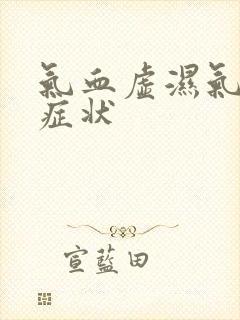 氣血虛濕氣
症状
宣藍田